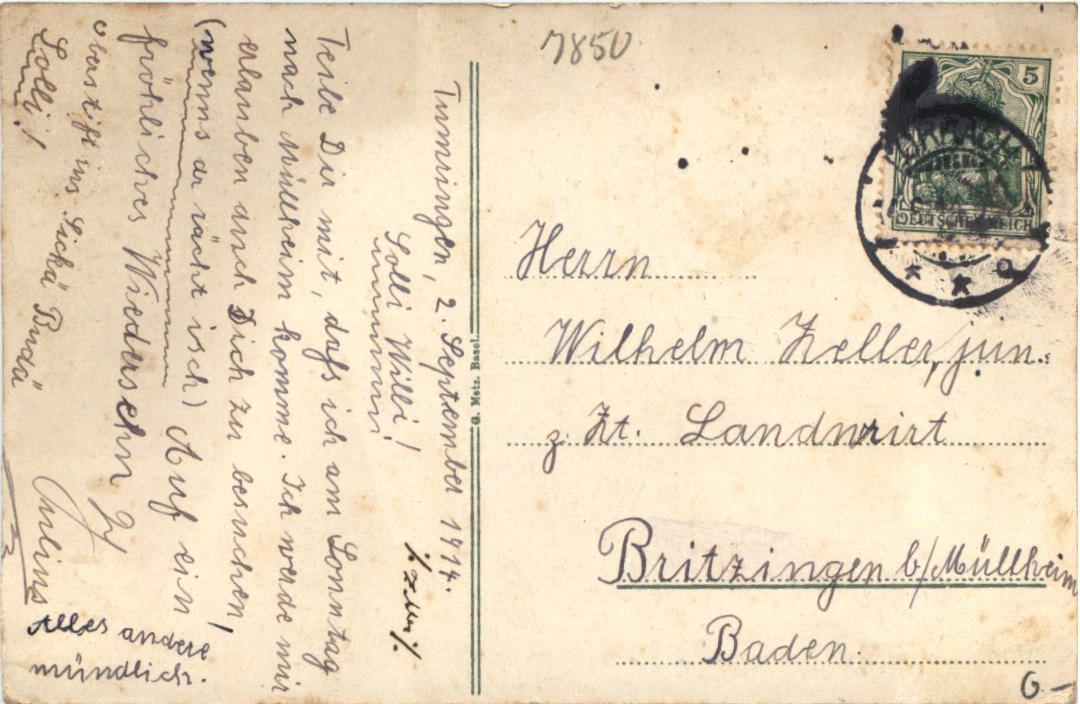 Tumringen, 2. September 1914.
Solli Willi!
Teile Dir mit, dass ich am Sonntag
nach Müllheim komme. Ich werde mir
erlauben auch Dich zu besuchen,
(wenns dr rächt isch) Auf ein
fröhliches Wiedersehn
Solli!
Julius
Alles andere
mündlich.
G. Metz. Basel.
7850
5
DEUTSCHES REICH
LÖRRACH
Herrn
Wilhelm Zeller, jun.
z. Zt. Landwirt
Britzingen b/Müllheim
Baden.